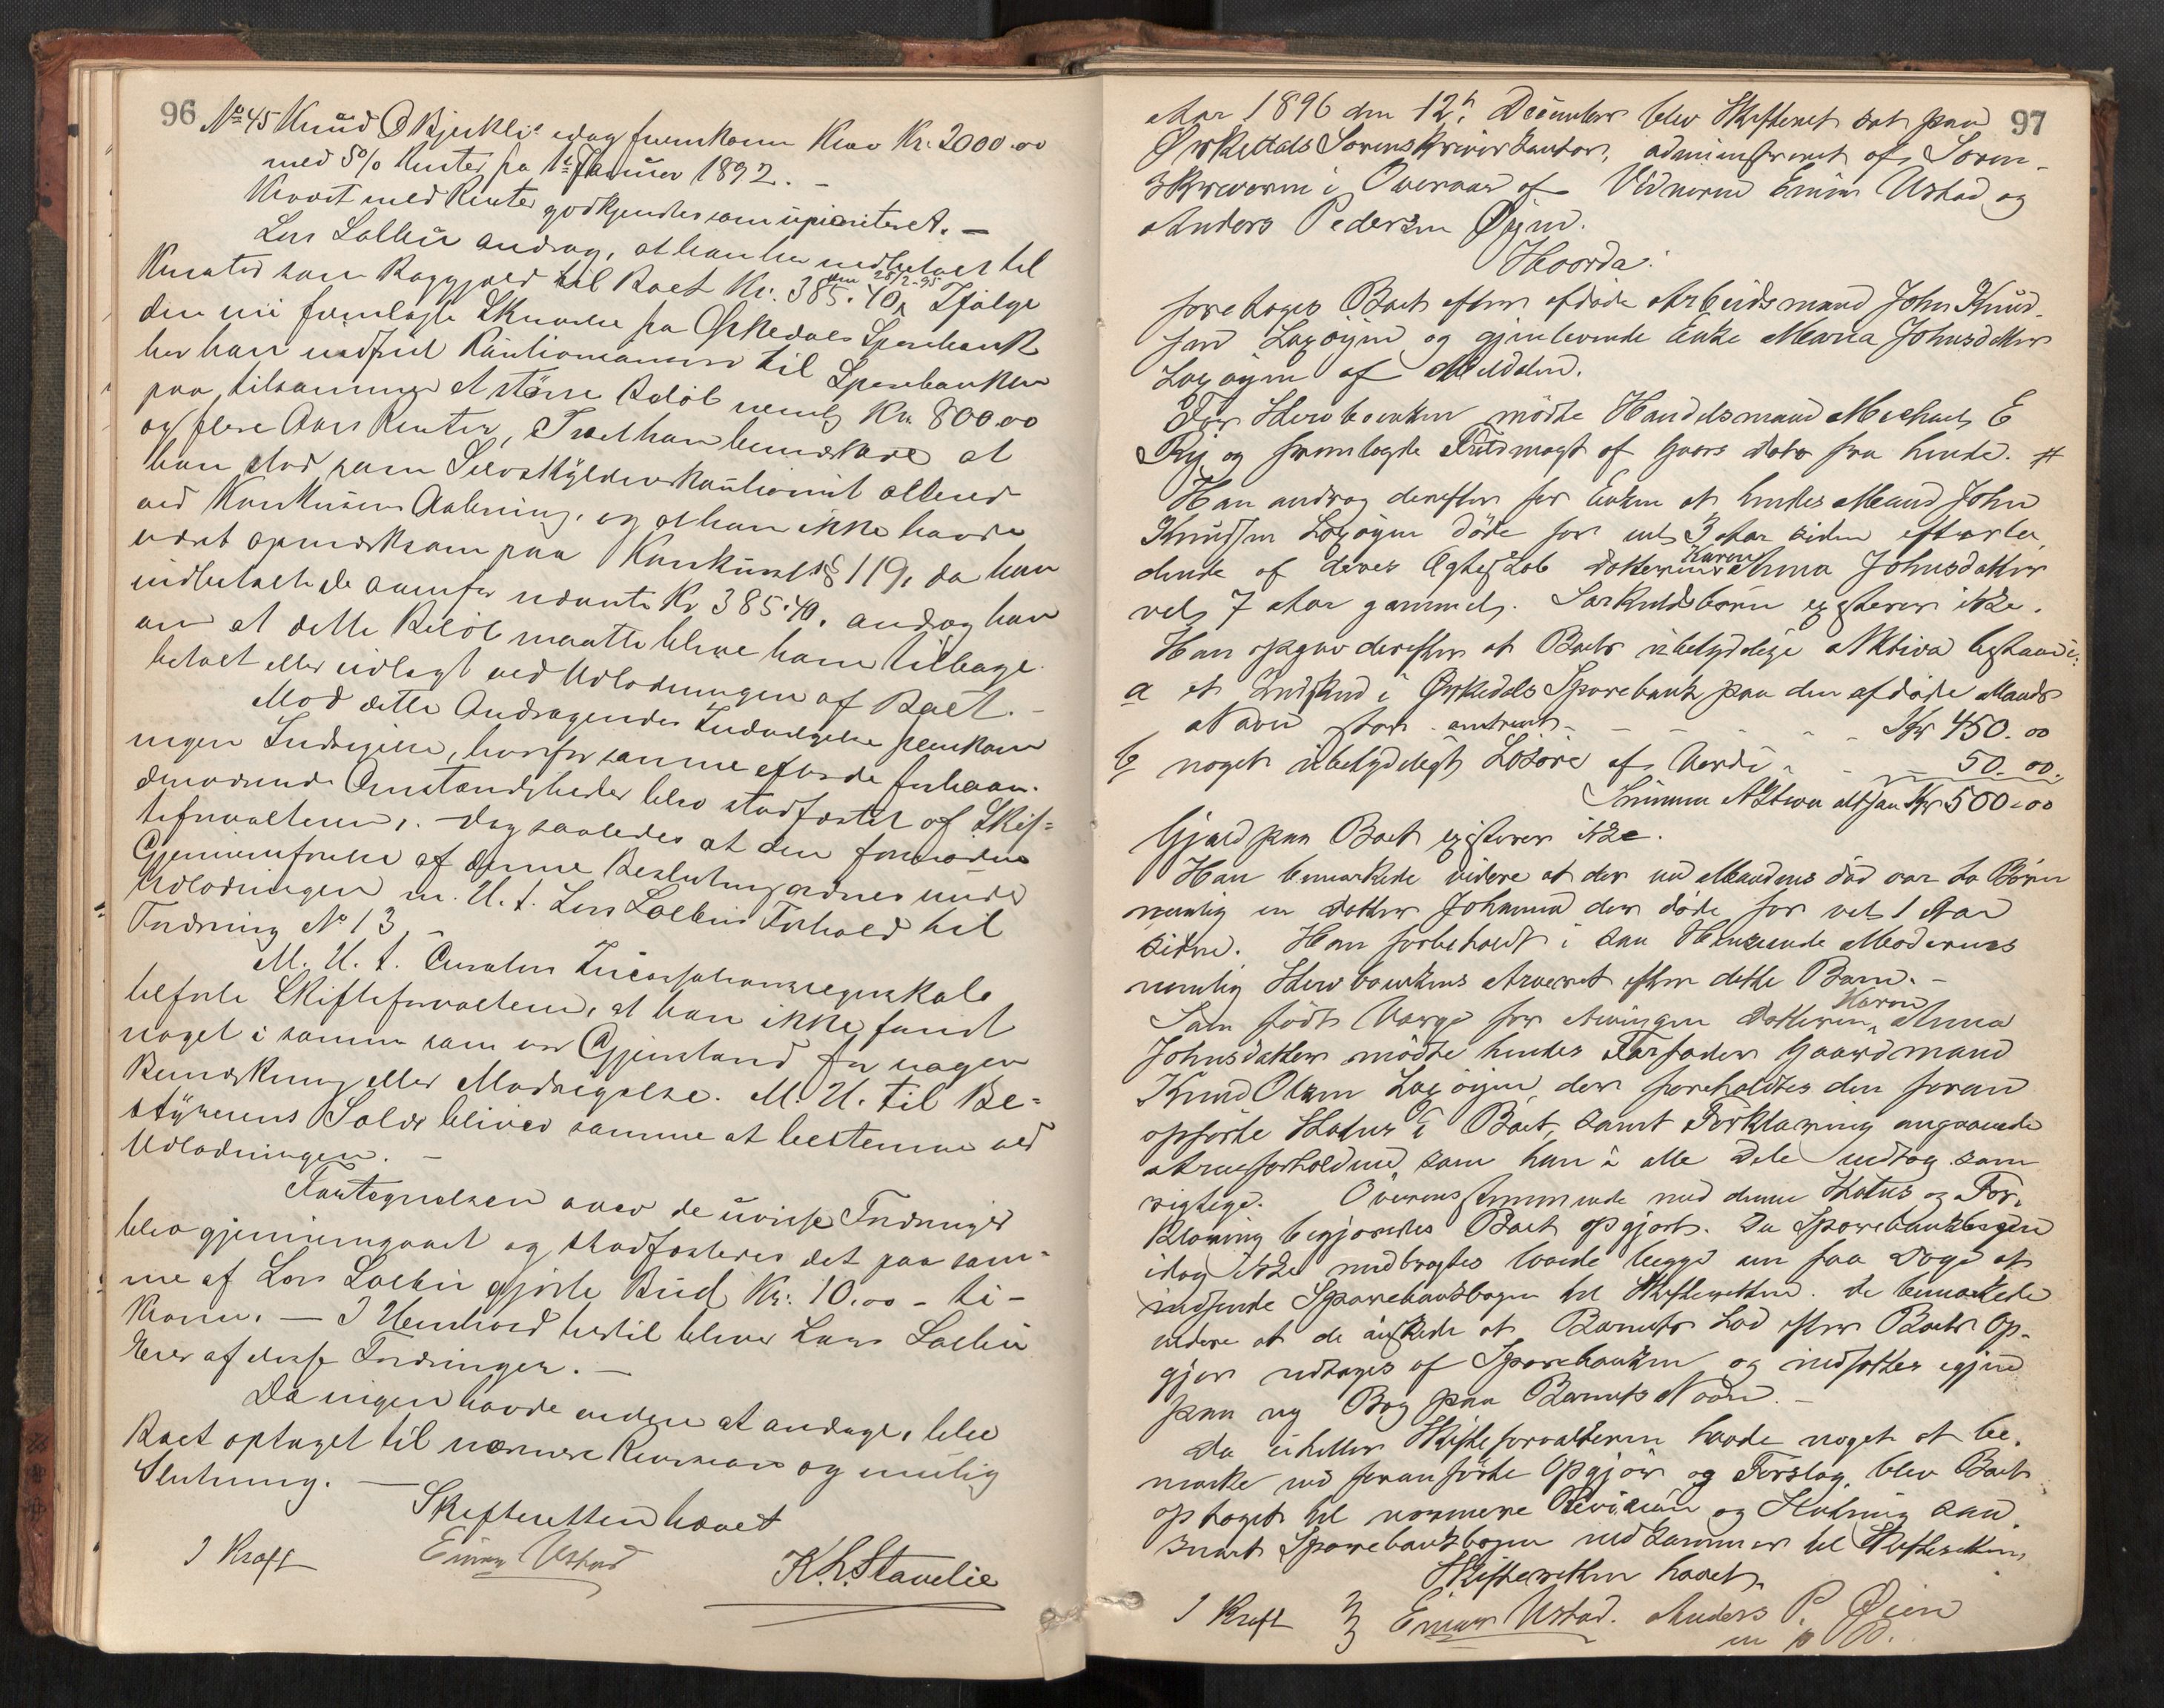 96
No 45 Knud O Bjerkli's idag fremkomne Krav Kr. 2000.00
med 5% Renter fra 1ste Januar 1892. –
Kravet med Renter godkjendes som uprioriteret. –
Lars Solbu androg, at han har indbetalt til
Kurator som Boggjæld til Boet Kr. 385.40, den 28/2-95 Ifølge
den nu fremlagte Skrivelse fra Ørkedals Sparebank
har han indfriet Kautionsansvar til Sparebanken
paa tilsammen et større Beløb nemlig Kr. 800.00
og flere Aars Renter, Idet han bemærkede at
han stod som Selvskyldnerkautionist allered
ved Konkursens Aabning, og at han ikke havde
været opmærksom paa Konkursl. § 119, da han
indbetalte de ovenfor nævnte Kr. 385.40, androg han
om at dette Beløb maatte blive ham tilbage-
betalt eller udlagt ved Udlodningen af Boet. –
Mod dette Andragendes Indvilgelse fremkom
ingen Indsigelse, hvorfor samme efter de forhaan-
denværende Omstændigheder blev stadfæstet af Skif-
teforvalteren, – dog saaledes at den fornødne
Gjennemførelse af denne Beslutning ordnes under
Udlodningen m. H. t. Lars Solbus Forhold til
Fordring No 13. –
M. H. t. Curators Inkassationsregnskab
tilførte Skifteforvalteren, at han ikke fandt
noget i samme som var Gjenstand for nogen
Bemærkning eller Modsigelse. M. H. til Be-
styrerens Salær bliver samme at bestemme ved
Udlodningen. –
Fortegnelsen over de uvisse Fordringer
blev gjennemgaaet og stadfæstedes det paa sam-
me af Lars Solbu gjorte Bud Kr. 10.00 – ti –
Kroner. – I Henhold hertil bliver Lars Solbu
Eier af disse Fordringer. –
Da ingen havde videre at andrage, blev
Boet optaget til nærmere Revision og endelig
Slutning. –
Skifteretten hævet
I Kraft Einar Ustad K. L. Stavelie
97
Aar 1896 den 12te December blev Skifteret sat paa
Ørkedals Sorenskriverkontor, administreret af Soren-
skriveren i Overvær af Vidnerne Einar Ustad og
Anders Pedersen Øyen.
Hvorda:
foretoges Boet efter afdøde Arbeidsmand John Knud-
sen Laxøien og gjenlevende Enke Maria Johnsdatter
Laxøien af Meldalen.
For Stervboenken mødte Handelsmand Michael E
Ry og fremlagde Fuldmagt af Gaars Dato fra hende. #
Han androg derefter for Enken at hendes Mand John
Knudsen Laxøien døde for vel 3 Aar siden efterla-
dende af deres Ægteskab Datteren Karen Anna Johnsdatter
vel 7 Aar gammel. Særkuldsbørn existerer ikke.
Han opgav derefter at Boets ubetydelige Aktiva bestaar i:
a et Indskud i Ørkedals Sparebank paa den afdøde Mands
Navn stort omtrent – – – – Kr 450.00
b noget ubetydeligt Løsøre af Værdi – – 50.00
Summa Aktiva altsaa Kr 500.00
Gjæld paa Boet existerer ikke.
Han bemærkede videre at der ved Mandens død var to Børn
nemlig en Datter Johanna der døde for vel 1 Aar
siden. Han forbeholdt i saa Henseende Moderens
nemlig Stervboenkens Arveret efter dette Barn. –
Som født Værge for Arvingen Datteren Karen Anna
Johnsdatter mødte hendes Farfader Gaardmand
Knud Olsen Laxøien, der foreholdtes den foran
opførte Status i Boet, samt Forklaring angaaende
Arveforholdene, som han i alle Dele vedtog som
rigtige. Overensstemmende med denne Status og For-
klaring begjæredes Boet opgjort. Da Sparebankbogen
idag ikke medbragtes lovede begge om faa Dage at
indsende Sparebankbogen til Skifteretten. De bemærkede
videre at de ønskede at Barnets Lod efter Boets Op-
gjør udtages af Sparebanken og indsættes igjen
paa ny Bog paa Barnets Navn. –
Da ei heller Skifteforvalteren havde noget at be-
mærke ved foranførte Opgjør og Forslag, blev Boet
optaget til nærmere Revision og Slutning saa
snart Sparebankbogen indkommer til Skifteretten
Skifteretten hævet.
I Kraft Einar Ustad. Anders P. Øien
m p P.